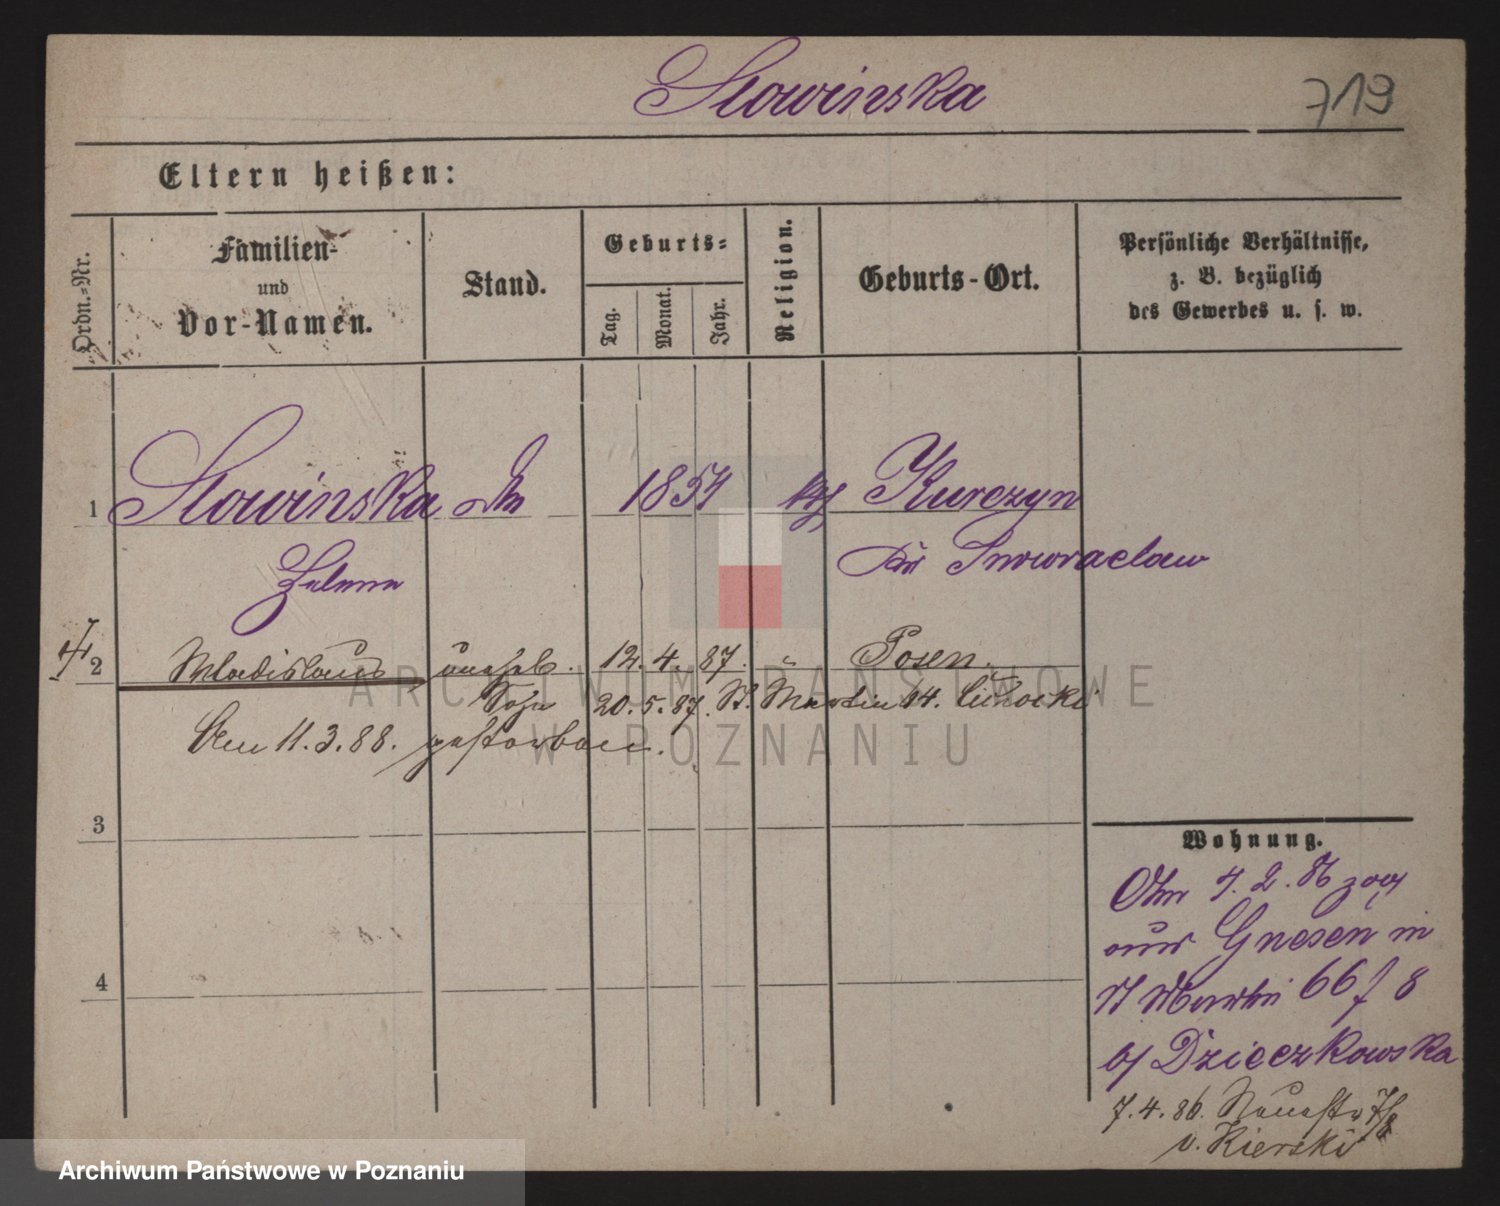 Slowinska
719
Eltern heißen:
Ordn.-Nr.
Familien-
und
Vor-Namen.
Stand.
Geburts-
Tag.
Monat.
Jahr.
Religion.
Geburts-Ort.
Persönliche Verhältnisse,
z. B. bezüglich
des Gewerbes u. s. w.
1 Slowinska 1854 Kurczyn
Helena Kr Inowraclaw
2 Wladislaus unehel. 12. 4. 87. " Posen.
Sohn 20. 5. 87. St. Martin 14. Cichocki
Am 11. 3. 88. gestorben.
3
4
Wohnung.
Am 4. 2. 86 zog
aus Gnesen in
St Martin 66 f 8
b/ Dzieczkowska
7. 4. 86. Neuestr 7/8
v. Kierski
ARCHIWUM PAŃSTWOWE
W POZNANIU
Archiwum Państwowe w Poznaniu